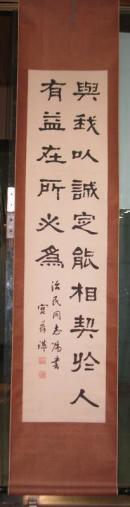 與我以誠定能相契於人
有益在所必為
治民同志屬書